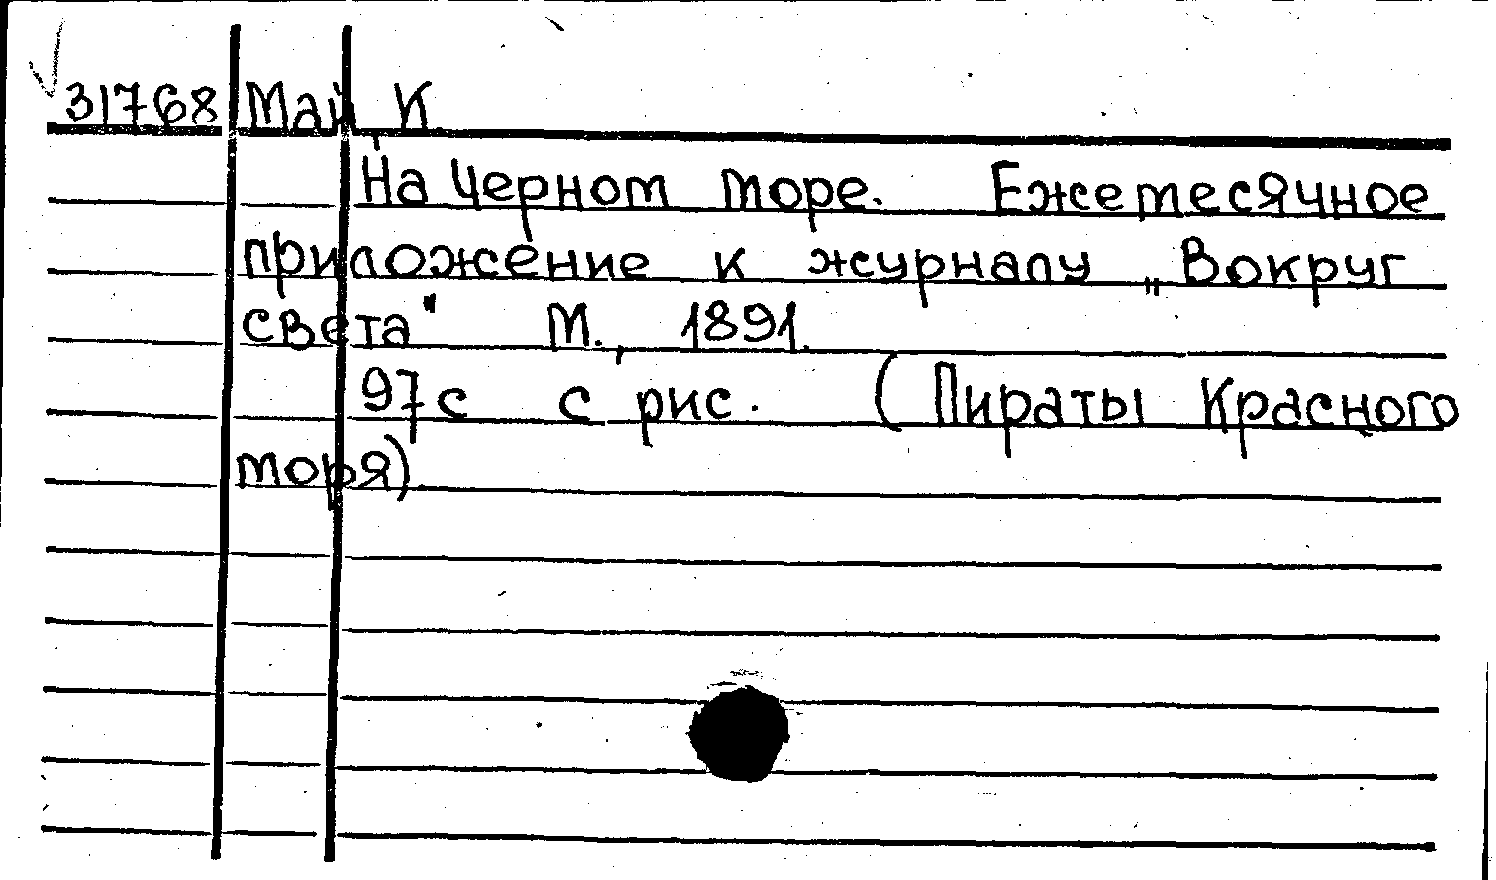 31768 Май, К.
На Черном море. Ежемесячное
приложение к журналу „Вокруг
света" М., 1891.
97 с с рис. (Пираты Красного
моря).